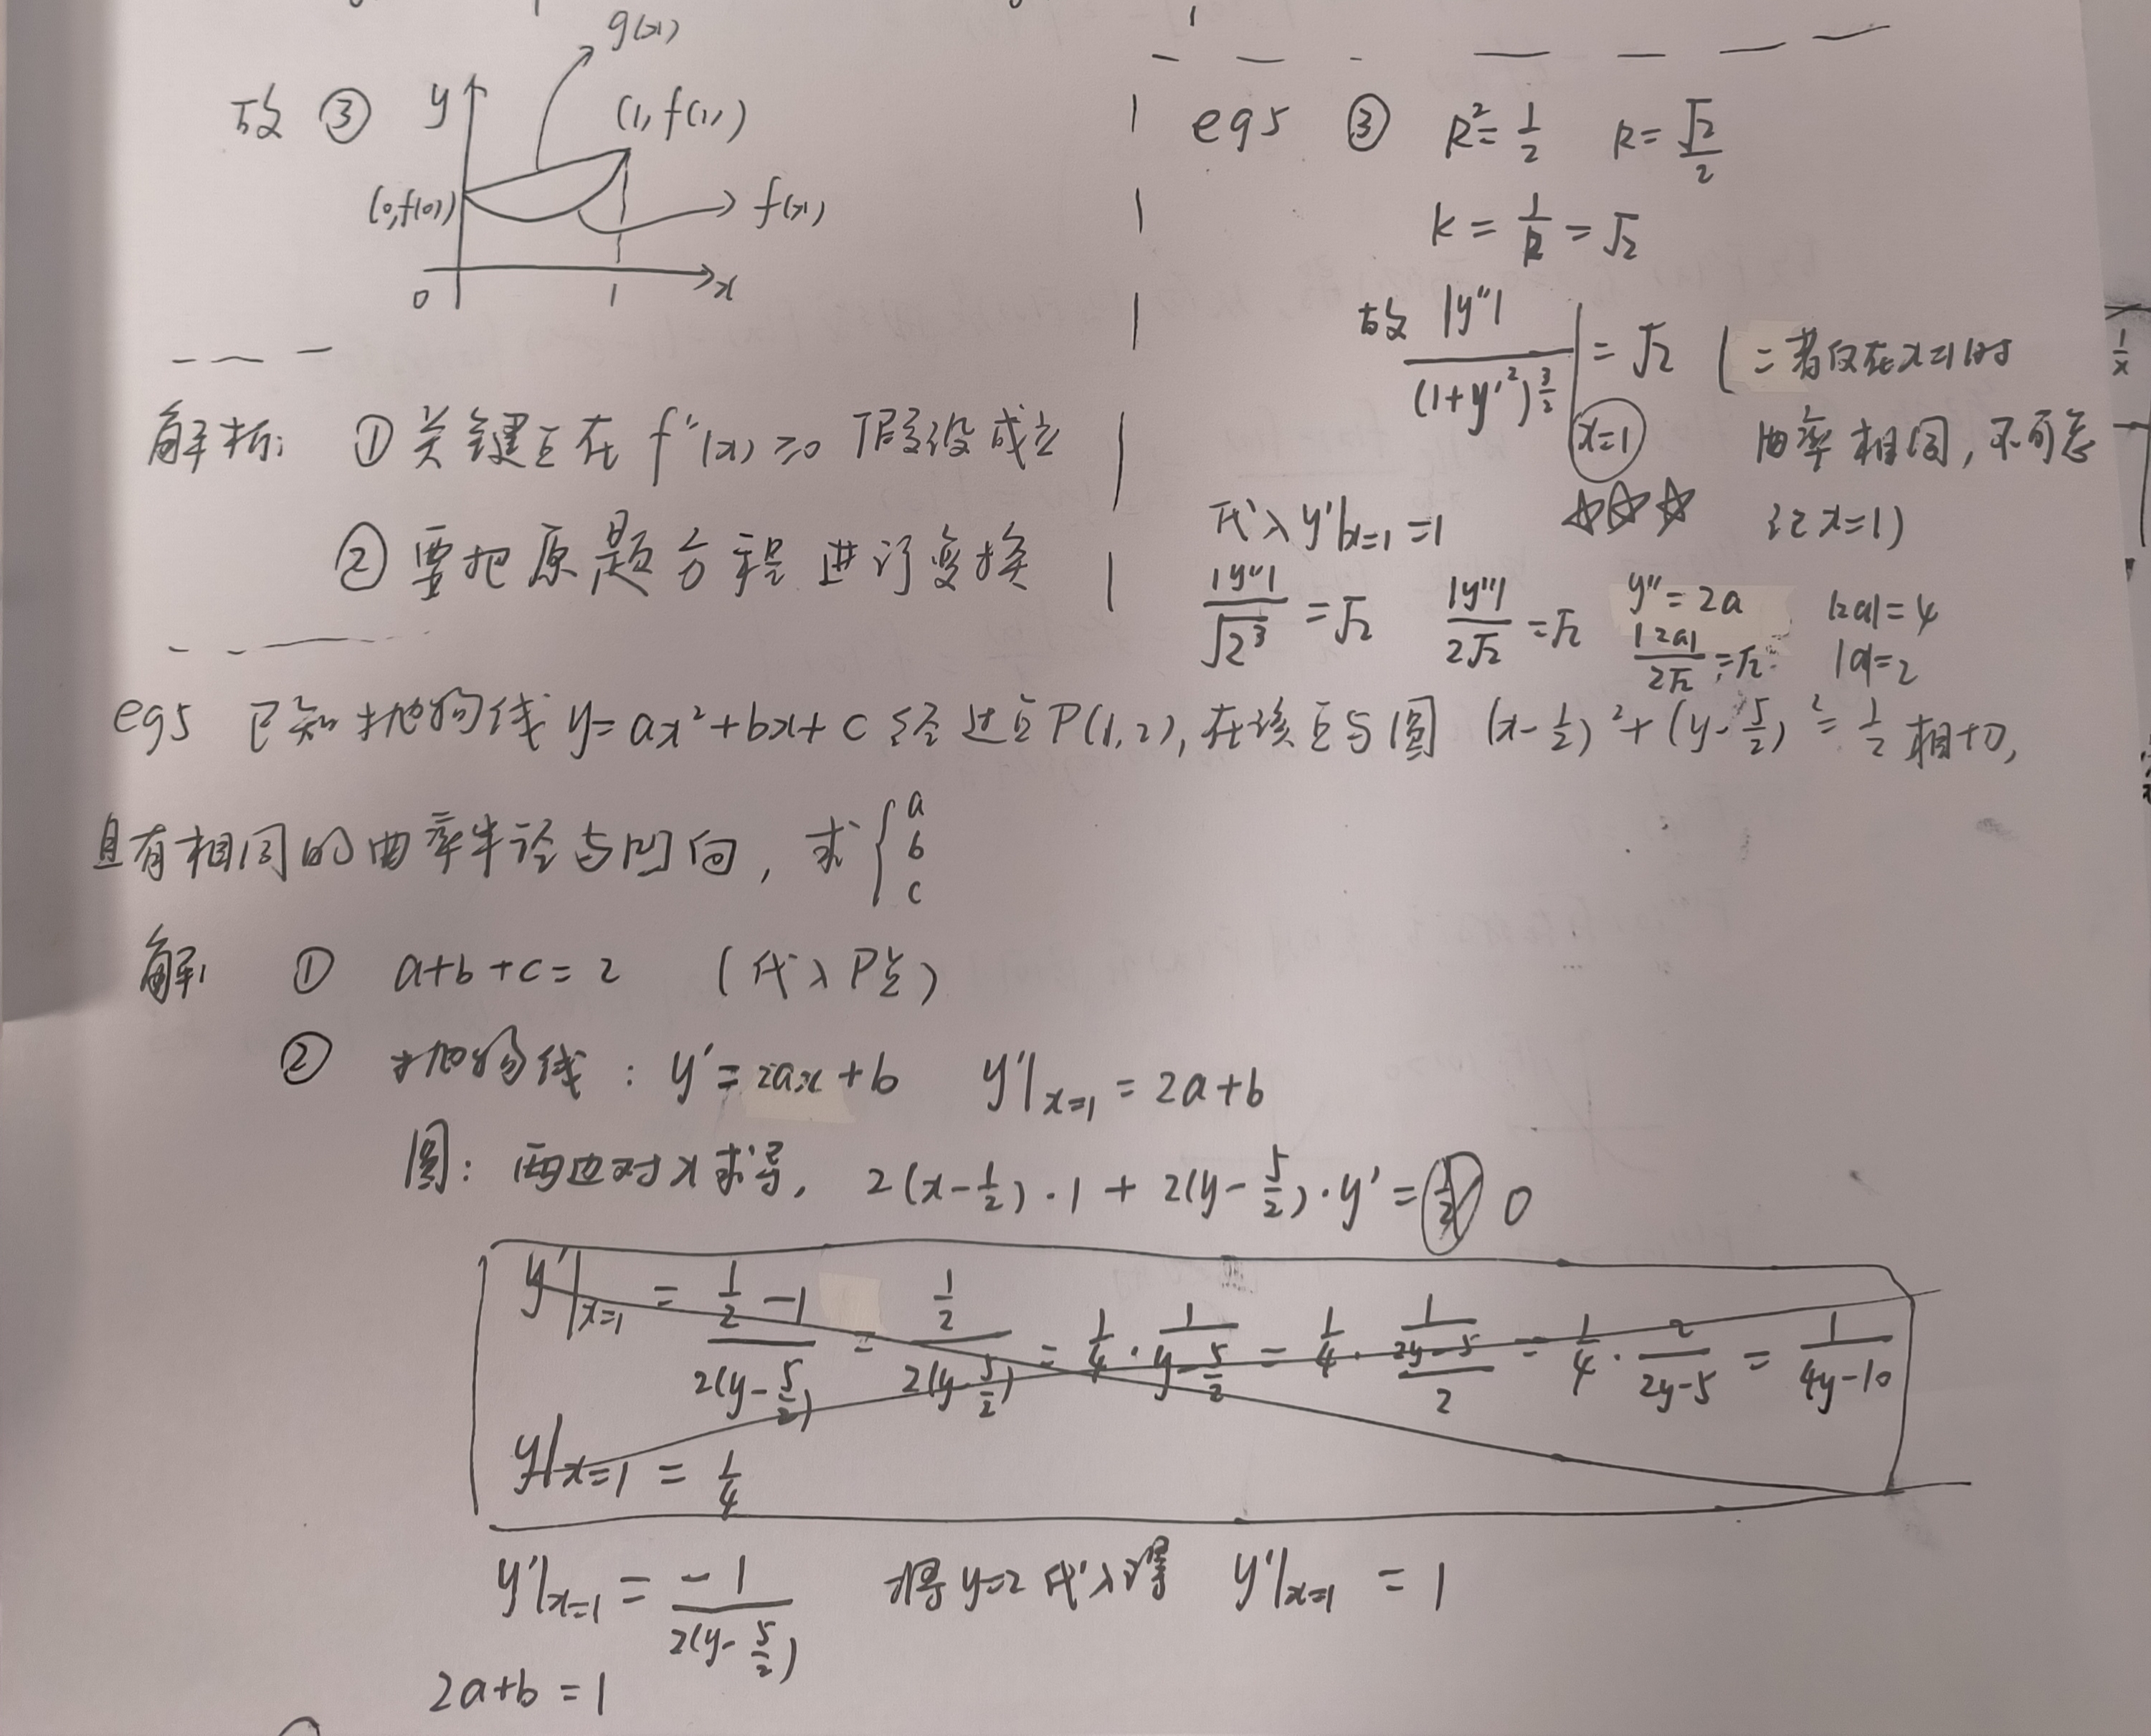 g(x)
故 ③ y (1, f(1))
(0,f(0)) f(x)
0 1 x
解析: ①关键点在 f''(x)≥0 假设成立
②要把原题方程进行变换
eg5 ③ R²=1/2 R=√2/2
k=1/R=√2
故 |y''|/(1+y'²)^(3/2) |x=1 = √2 (二者仅在x=1时
曲率相同,不可忘
记x=1)
代入y'|x=1 =1 ☆☆☆
|y''|/√2³ =√2 |y''|/2√2 =√2 y''=2a |2a|=4
|2a|/2√2 =√2 |a|=2
eg5 已知抛物线 y=ax²+bx+c 经过点P(1,2),在该点与圆 (x-1/2)²+(y-5/2)²=1/2 相切,
且有相同的曲率半径与凹向,求{a b c
解: ① a+b+c=2 (代入P点)
② 抛物线: y'=2ax+b y'|x=1 =2a+b
圆: 两边对x求导, 2(x-1/2)·1+2(y-5/2)·y'=1/2 0
y'|x=1 = (1/2 -1)/2(y-5/2) = (1/2)/2(y-5/2) = 1/4 · 1/(y-5/2) = 1/4 · 1/((2y-5)/2) = 1/4 · 2/(2y-5) = 1/(4y-10)
y|x=1 = 1/4
y'|x=1 = -1/2(y-5/2) 将y=2代入得 y'|x=1 =1
2a+b=1
1/x